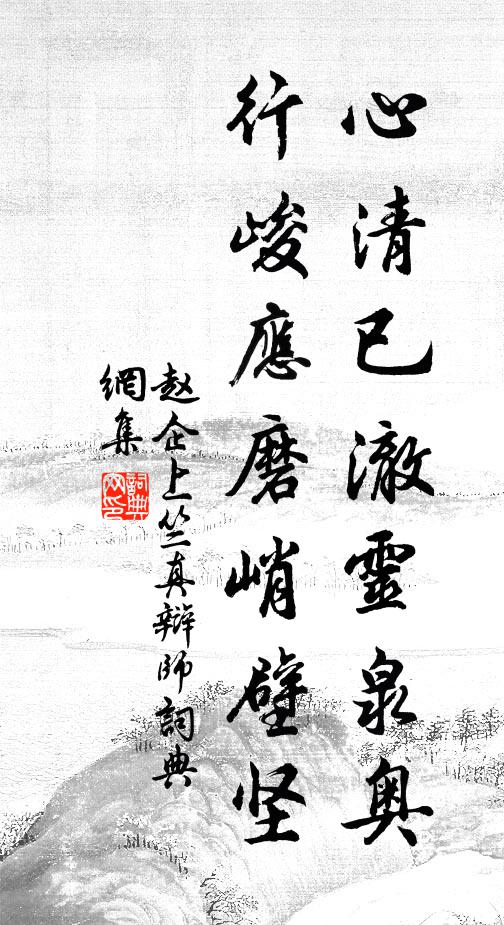 心清已澈靈泉奥
行峻應磨峭壁坚
赵企上竺真辯师詞典
網集
詞典
网印